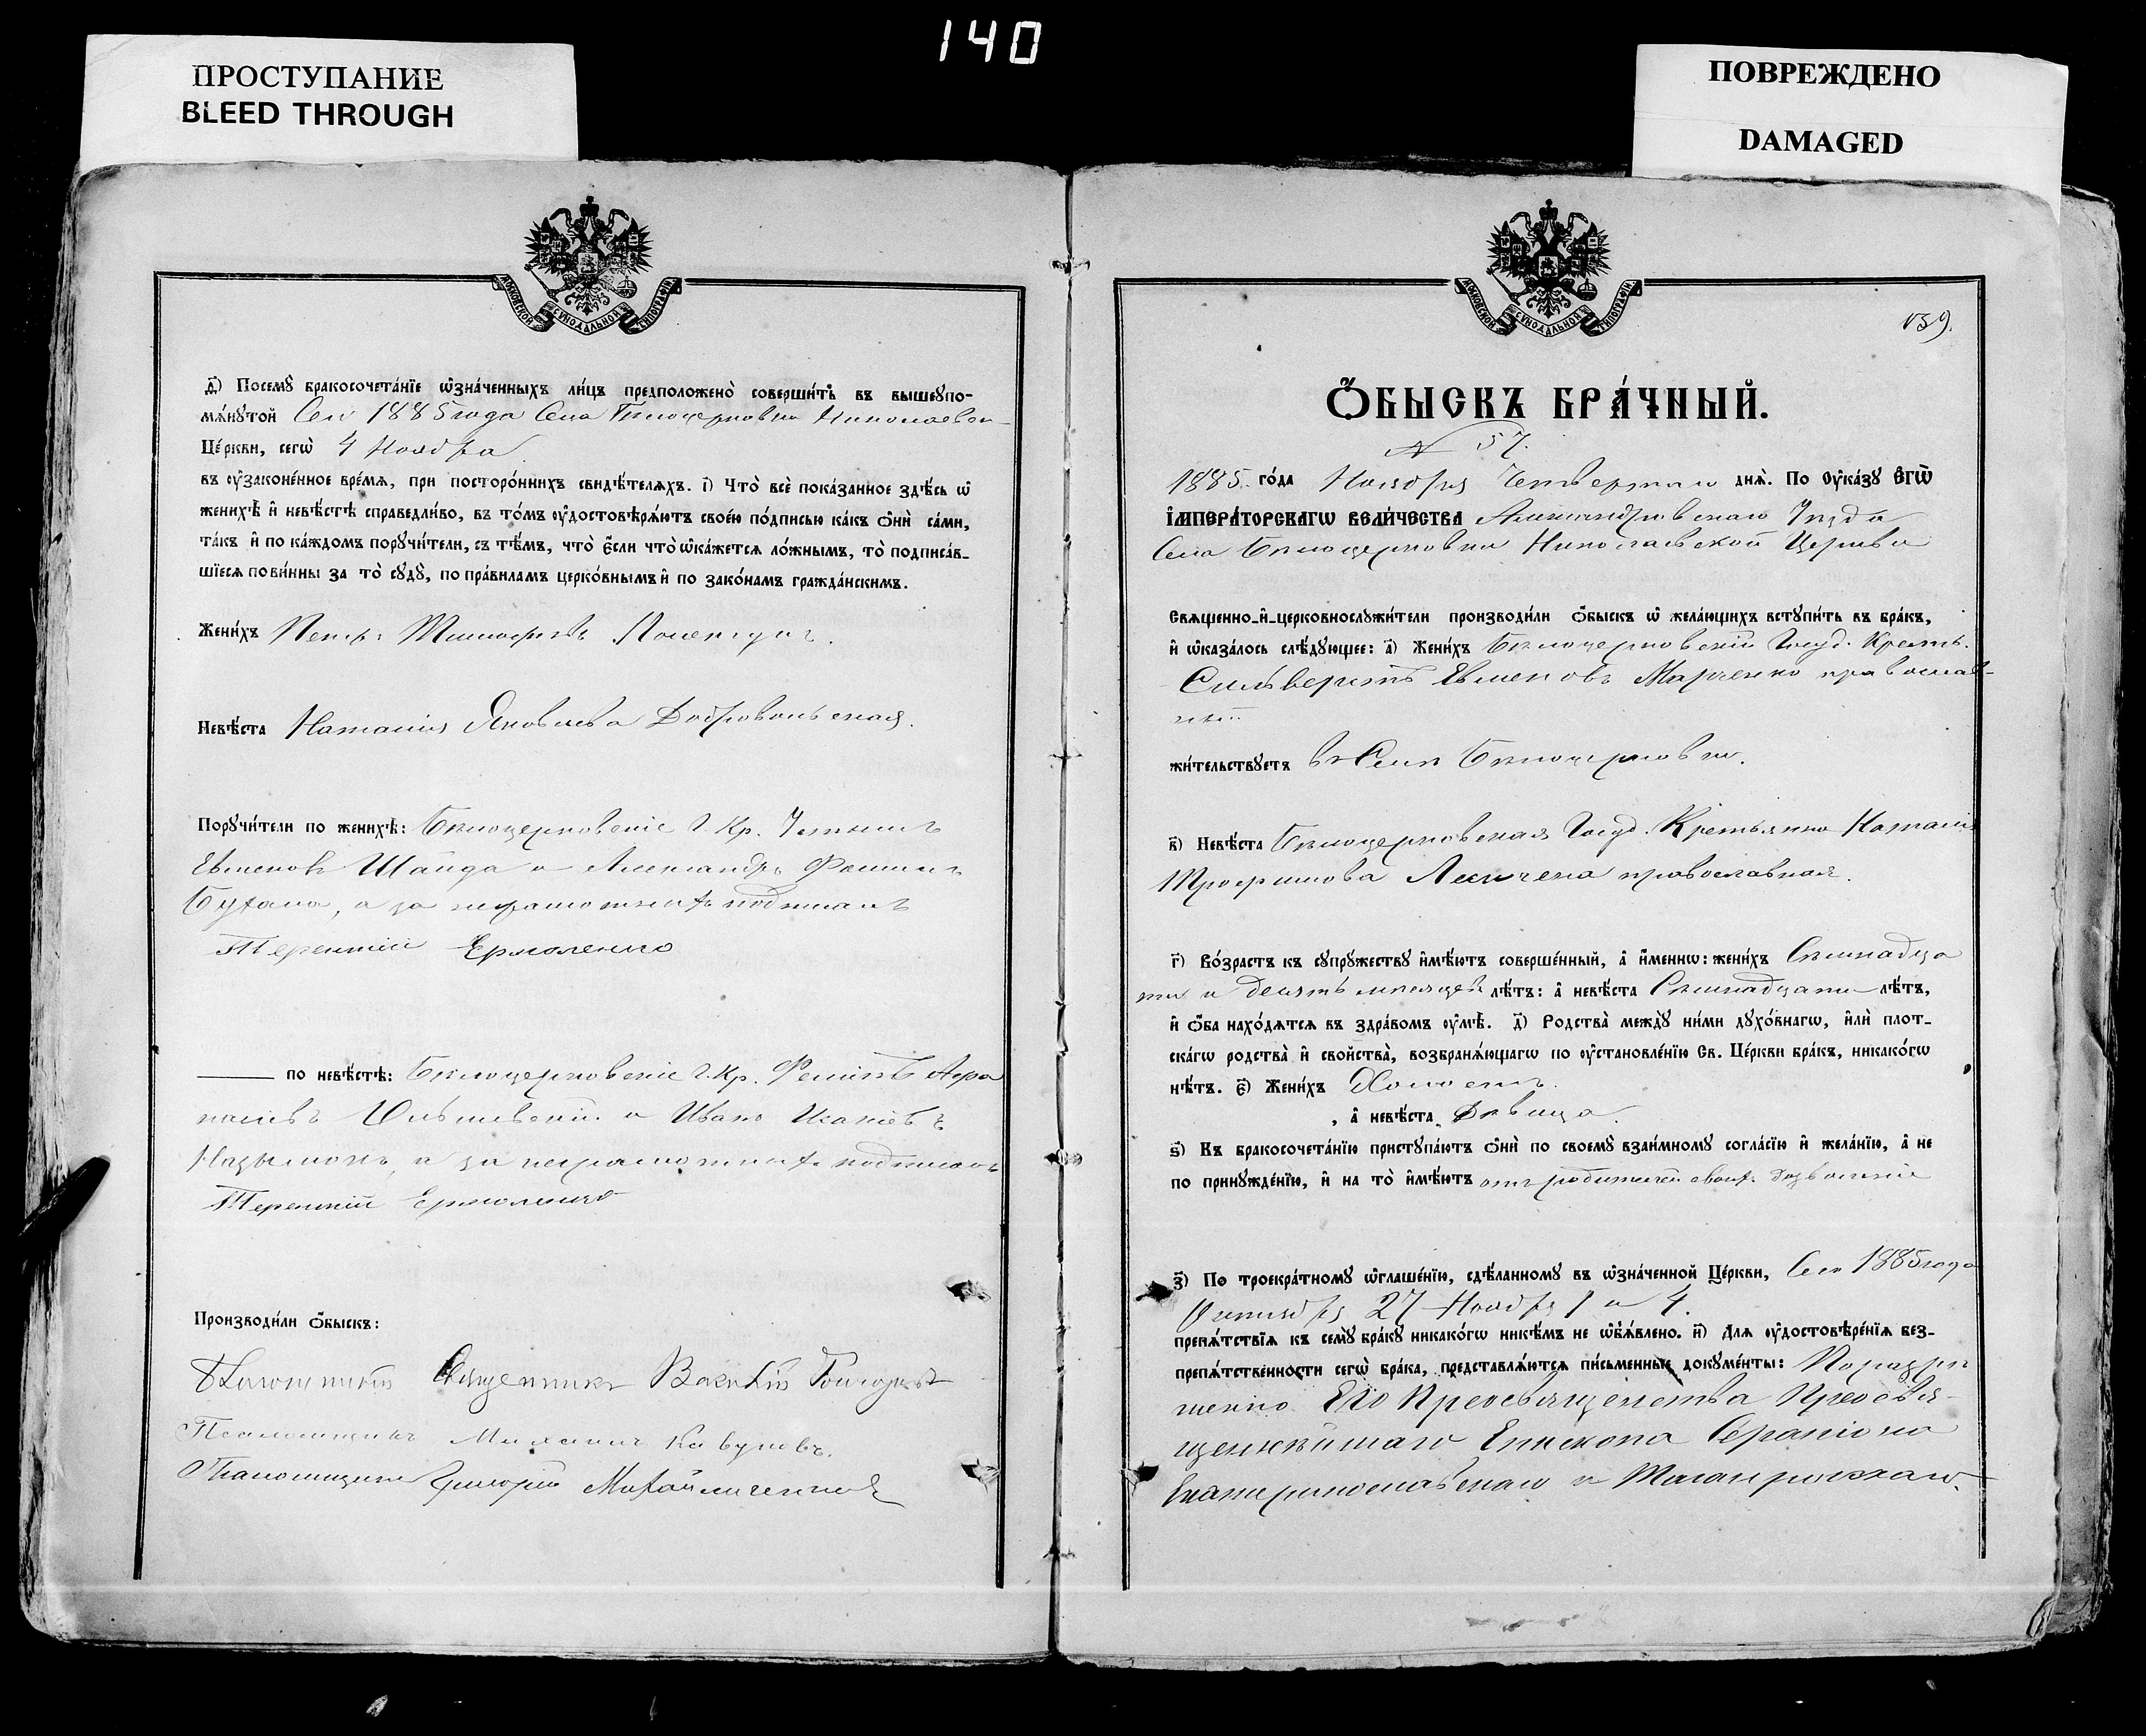 140
ПРОСТУПАНИЕ
BLEED THROUGH
ПОВРЕЖДЕНО
DAMAGED
МОСКОВСКОЙ СѴНОДАЛЬНОЙ ТИПОГРАФІИ
д҃) Посемꙋ̀ бракосочета́нїе ѡ҆зна́ченныхъ ли́цъ предположено̀ соверши́ть въ вышеꙋпо-
мѧ́нꙋтой Сего 1885 года Села Бѣлоцерковки Николаевск
Це́ркви, сегѡ̀ 4 Ноября
въ ᲂу҆законе́нное вре́мѧ, при посторо́ннихъ свидѣ́телѧхъ. і҃) Что̀ всѐ пока́занное здѣ́сь ѡ҆
женихѣ̀ и҆ невѣ́стѣ справедли́во, въ то́мъ ᲂу҆достовѣрѧ́ютъ свое́ю по́дписью ка́къ ѻ҆нѝ са́ми,
та́къ и҆ по ка́ждомъ порꙋчи́тели, съ тѣ́мъ, что̀ є҆́сли что̀ ѡ҆ка́жетсѧ ло́жнымъ, то̀ подписа́в-
шїесѧ пови́нны за то̀ сꙋдꙋ̀, по пра́виламъ церко́внымъ и҆ по зако́намъ гражда́нскимъ.
Жени́хъ Петръ Тимофеевъ
Невѣ́ста Наталія Яковлева Добровольская.
Порꙋчи́тели по женихѣ̀: Бѣлоцерковскіе Г. Кр. Устинъ
Евменовъ Шайда и Александръ Фоминъ
Бухало, а за неграмотныхъ подписалъ
Терентій Ермоленко
по невѣ́стѣ: Бѣлоцерковскіе Г. Кр.
и Иванъ Исаіевъ
а за неграмотныхъ подписалъ
Терентій Ермоленко
Производи́ли ѻ҆́быскъ:
Священникъ
Псаломщикъ Михаилъ Кавуновъ.
Псаломщикъ Григорій Михайличенко
МОСКОВСКОЙ СѴНОДАЛЬНОЙ ТИПОГРАФІИ
139.
Ѻ҆́БЫСКЪ БРА́ЧНЫЙ.
№ 57.
1885. го́да Ноября Четвертаго днѧ̀. По ᲂу҆ка́зꙋ Є҆ГѠ̀
І҆МПЕРА́ТОРСКАГѠ ВЕЛИ́ЧЕСТВА Александровскаго Уѣзда
Села Бѣлоцерковки Николаевской Церкви
Свѧщенно-и҆-церковнослꙋжи́тели производи́ли ѻ҆́быскъ ѡ҆ жела́ющихъ встꙋпи́ть въ бра́къ,
и҆ ѡ҆каза́лось слѣ́дꙋющее: а҃) Жени́хъ Бѣлоцерковскій Госуд. Кресть.
Сильверстъ Евменовъ Марченко православ-
ный
жи́тельствꙋетъ въ Селѣ Бѣлоцерковки.
в҃) Невѣ́ста Бѣлоцерковская Госуд. Крестьянка Наталія
Трофимова православная.
г҃) Во́зрастъ къ сꙋпрꙋ́жествꙋ и҆мѣ́ютъ соверше́нный, а҆ и҆́меннѡ: жени́хъ Семнадца
ти и десять мѣсяцевъ лѣ́тъ: а҆ невѣ́ста Семнадцати лѣ́тъ,
и҆ ѻ҆́ба нахо́дѧтсѧ въ здра́вомъ ᲂу҆мѣ̀. д҃) Родства̀ междꙋ̀ ни́ми дꙋхо́внагѡ, и҆лѝ плот-
ска́гѡ родства̀ и҆ сво́йства̀, возбранѧ́ющагѡ по ᲂу҆становле́нїю Св. Це́ркви бра́къ, никако́гѡ
нѣ́тъ. є҃) Жени́хъ Холостъ.
, а҆ невѣ́ста Дѣвица.
ѕ҃) Къ бракосочета́нїю пристꙋпа́ютъ ѻ҆нѝ по своемꙋ̀ взаи́мномꙋ согла́сїю и҆ жела́нїю, а҆ не
по принꙋжде́нїю, и҆ на то̀ и҆мѣ́ютъ отъ родителей своихъ дозволеніе
з҃) По троекра́тномꙋ ѡ҆глаше́нїю, сдѣ́ланномꙋ въ ѡ҆зна́ченной Це́ркви, Сего 1885 года
Октября 27 Ноября 1 и 4.
препѧ́тствїѧ къ семꙋ̀ бра́кꙋ никако́гѡ никѣ́мъ не ѡ҆б̾ѧ́влено. и҃) Длѧ ᲂу҆достовѣре́нїѧ без-
препѧ́тственности сегѡ̀ бра́ка, представлѧ́ютсѧ пи́сьменные докꙋме́нты: По разрѣ
шенію Его Преосвященства Преосвя-
щеннѣйшаго Епископа Серапіона
Екатеринославскаго и Таганрогскаго.